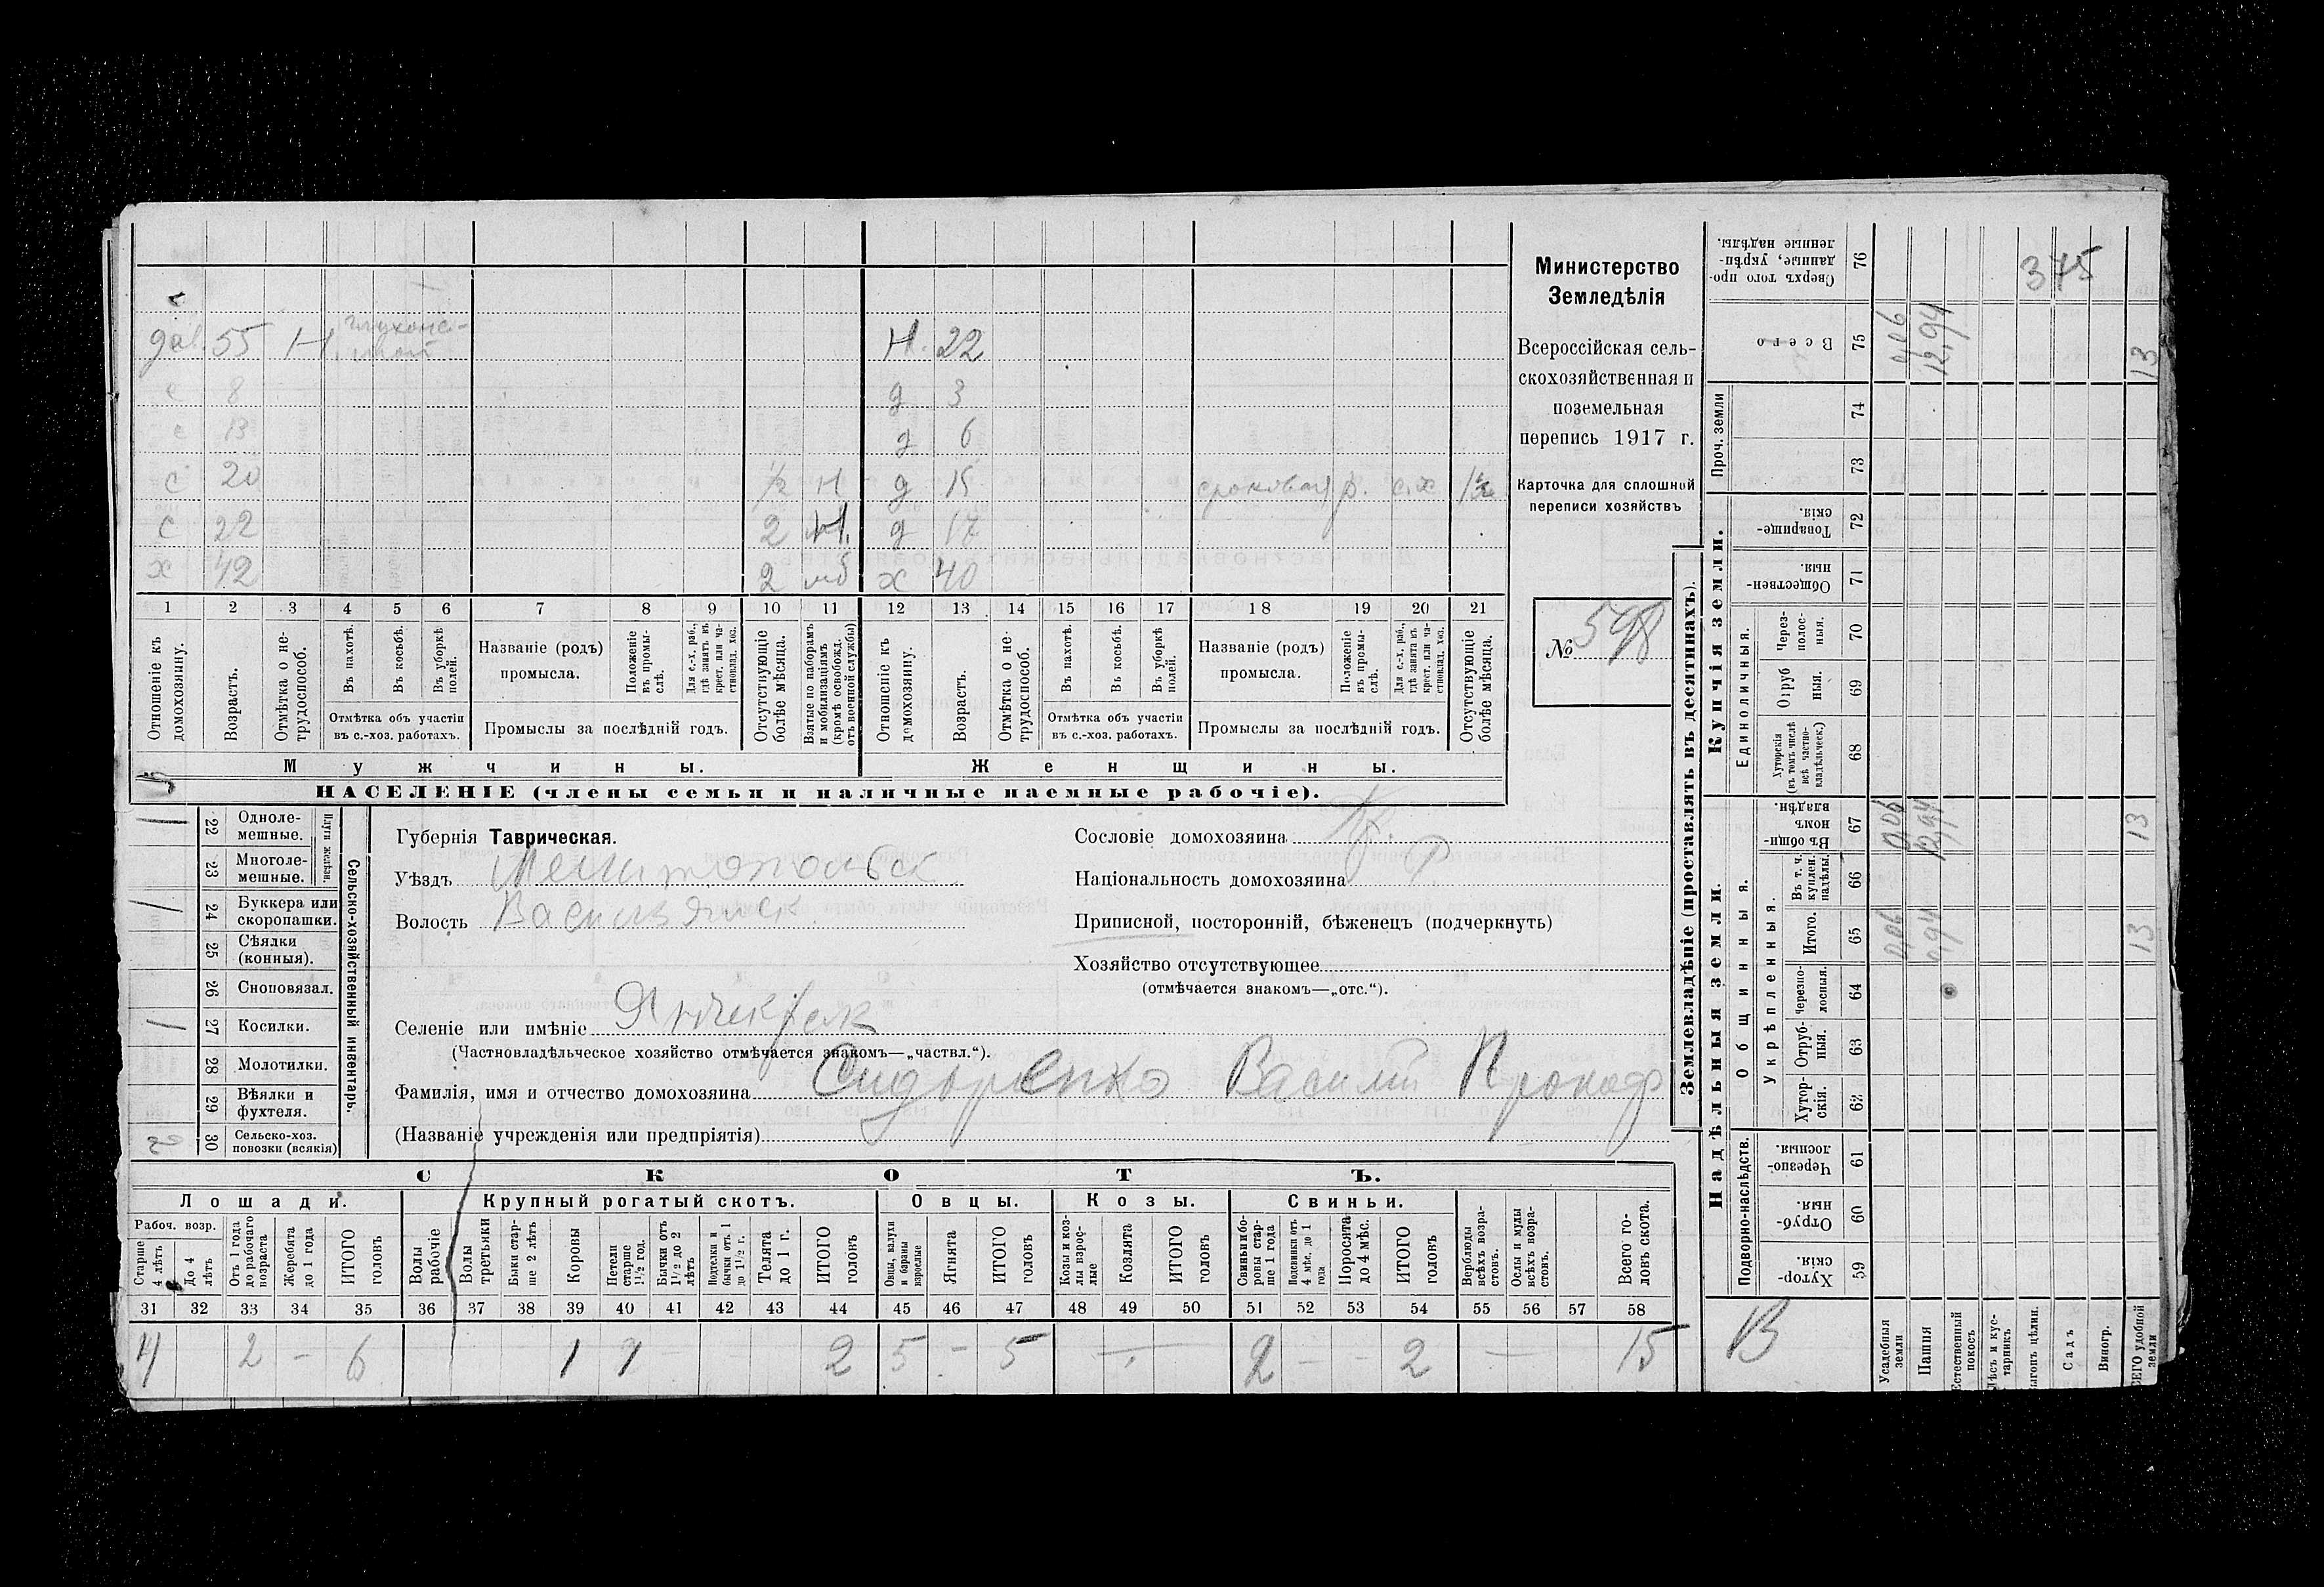 Министерство
Земледѣлія
Всероссійская сель-
скохозяйственная и
поземельная
перепись 1917 г.
Карточка для сплошной
переписи хозяйствъ
№ 598
55 Н
Н. 22
с 8
д 3
с 13
д 6
с 20 ½ Н д 15 сроковая р. с.х 1½
с 22 2 д 17
х 42 2 мб х 40
1 2 3 4 5 6 7 8 9 10 11 12 13 14 15 16 17 18 19 20 21
Отношеніе къ домохозяину.
Возрастъ.
Отмѣтка о не-трудоспособ.
Въ пахотѣ.
Въ косьбѣ.
Въ уборкѣ полей.
Отмѣтка объ участіи
въ с.-хоз. работахъ.
Названіе (родъ)
промысла.
Положеніе въ промы-слѣ.
Для с.-х. раб., гдѣ занятъ въ крест. или ча-стновлад. хоз.
Промыслы за послѣдній годъ.
Отсутствующіе болѣе мѣсяца.
Взятые по наборамъ и мобилизаціямъ (кромѣ освобожд. отъ военной службы)
Отношеніе къ домохозяину.
Возрастъ.
Отмѣтка о не-трудоспособ.
Въ пахотѣ.
Въ косьбѣ.
Въ уборкѣ полей.
Отмѣтка объ участіи
въ с.-хоз. работахъ.
Названіе (родъ)
промысла.
Положеніе въ промы-слѣ.
Для с.-х. раб., гдѣ занята въ крест. или ча-стновлад. хоз.
Промыслы за послѣдній годъ.
Отсутствующіе болѣе мѣсяца.
Мужчины. Женщины.
НАСЕЛЕНІЕ (члены семьи и наличные наемные рабочіе).
22 Одноле-мешные.
23 Многоле-мешные.
Плуги желѣзн.
24 Буккера или скоропашки.
25 Сѣялки (конныя).
26 Сноповязал.
27 Косилки.
28 Молотилки.
29 Вѣялки и фухтеля.
30 Сельско-хоз. повозки (всякія)
Сельско-хозяйственный инвентарь.
Губернія Таврическая.
Уѣздъ Мелитопольск
Волость Васильевск
Селеніе или имѣніе
(Частновладѣльческое хозяйство отмѣчается знакомъ—„частвл.“).
Фамилія, имя и отчество домохозяина Сидоренко Василій Прокоф
(Названіе учрежденія или предпріятія)
Сословіе домохозяина Кр.
Національность домохозяина Р
Приписной, посторонній, бѣженецъ (подчеркнуть)
Хозяйство отсутствующее
(отмѣчается знакомъ—„отс.“).
СКОТЪ.
Лошади. Крупный рогатый скотъ. Овцы. Козы. Свиньи.
Рабоч. возр.
Старше 4 лѣтъ
До 4 лѣтъ
Отъ 1 года до рабочаго возраста
Жеребята до 1 года
ИТОГО головъ
Волы рабочіе
Волы третьяки
Быки стар-ше 2 лѣтъ
Коровы
Нетели старше 1½ год.
Бычки отъ 1½ до 2 лѣтъ
Подтелки и бычки отъ 1 до 1½ г.
Телята до 1 г.
ИТОГО головъ
Овцы, валухи и бараны взрослые
Ягнята
ИТОГО головъ
Козы и коз-лы взрос-лые
Козлята
ИТОГО головъ
Свиньи и бо-ровы стар-ше 1 года
Подсвинки отъ 4 мѣс. до 1 года
Поросята до 4 мѣс.
ИТОГО головъ
Верблюды всѣхъ возра-стовъ.
Ослы и мулы всѣхъ возра-стовъ.
Всего го-ловъ скота.
31 32 33 34 35 36 37 38 39 40 41 42 43 44 45 46 47 48 49 50 51 52 53 54 55 56 57 58
4 2 – 6 1 1 2 5 – 5 — 2 – – 2 — 15
Землевладѣніе (проставлять въ десятинахъ).
Надѣльныя земли. Купчія земли.
Сверхъ того про-данные, укрѣп-ленные надѣлы. 76
375
Всего 75 0,06 12,94 13
Проч. земли 74
73
Товарище-скія. 72
Обществен-ныя. 71
Единоличныя.
Через-полос-ныя. 70
Отруб ныя. 69
Хуторскія (въ томъ числѣ всѣ частно-владѣльческ.) 68
Въ общин-номъ владѣн. 67 0,06 12,94 13
Общинныя.
Укрѣпленныя.
Въ т. ч. куплен. надѣлы. 66
Итого. 65 13
Черезпо-лосныя. 64
Отруб-ныя. 63
Хутор-скія. 62
Подворно-наслѣдств.
Черезпо-лосныя. 61
Отруб-ныя. 60
Хутор-скія. 59
Усадебныя земли
Пашня
Естественный покосъ
Лѣсъ и кус-тарникъ
Садъ
Виногр.